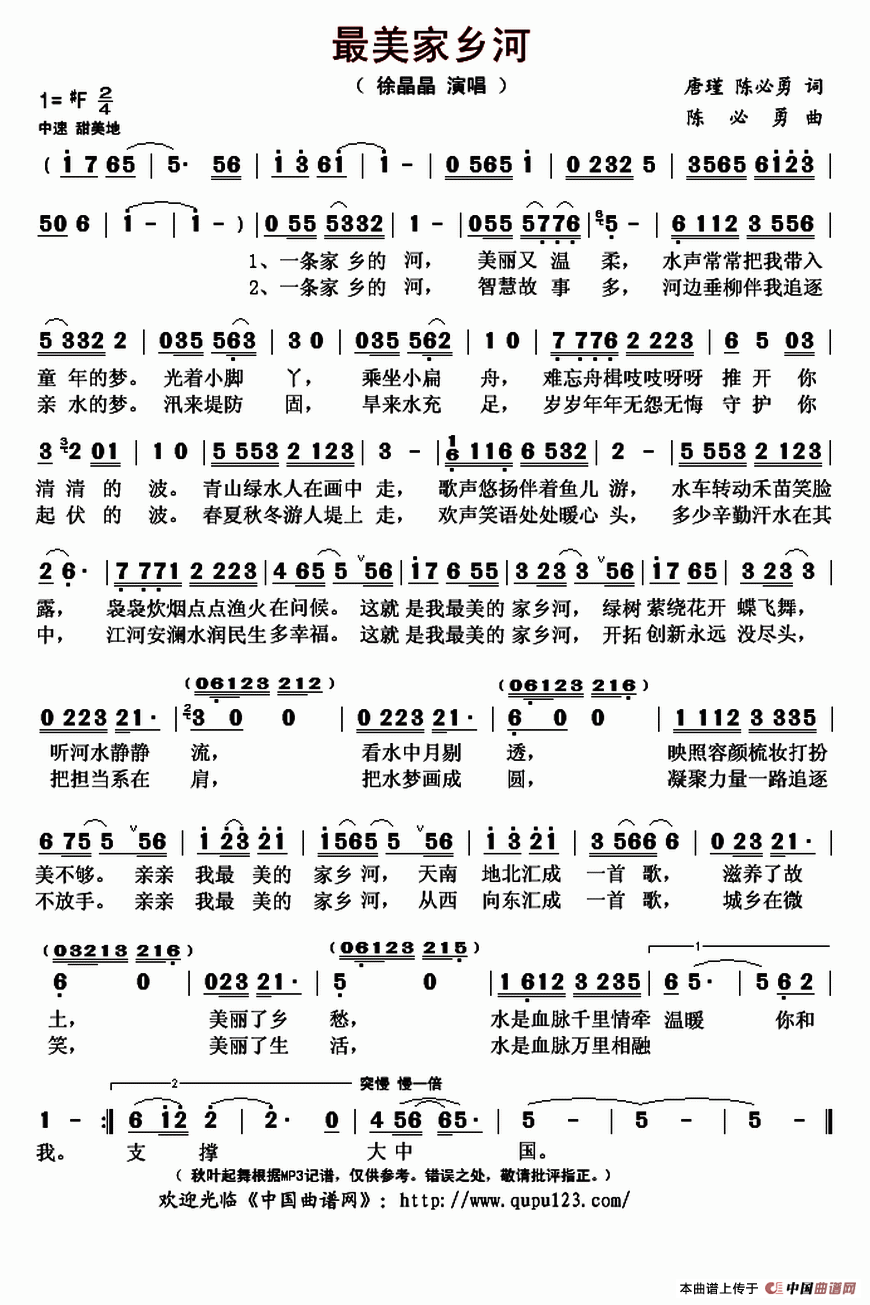 最美家乡河
（ 徐晶晶 演唱 ）
唐瑾 陈必勇 词
1= #F 2/4
陈 必 勇 曲
中速 甜美地
( 1 7 65 | 5· 56 | 1 3 61 | 1 - | 0 565 1 | 0 232 5 | 3565 6123 |
50 6 | 1 - | 1 - ) | 0 55 5332 | 1 - | 055 5776 | 5 - | 6 112 3 556 |
1、一条家 乡的 河， 美丽又 温 柔， 水声常常把我带入
2、一条家 乡的 河， 智慧故 事 多， 河边垂柳伴我追逐
5 332 2 | 035 563 | 3 0 | 035 562 | 1 0 | 7 776 2 223 | 6 5 03 |
童 年的梦。 光着小脚 丫， 乘坐小扁 舟， 难忘舟楫吱吱呀呀 推 开 你
亲 水的梦。 汛来堤防 固， 旱来水充 足， 岁岁年年无怨无悔 守 护 你
3 2 01 | 1 0 | 5 553 2 123 | 3 - | 6 116 6 532 | 2 - | 5 553 2 123 |
清 清 的 波。 青山绿水人在画中 走， 歌声悠扬伴着鱼儿 游， 水车转动禾苗笑脸
起 伏 的 波。 春夏秋冬游人堤上 走， 欢声笑语处处暖心 头， 多少辛勤汗水在其
2 6· | 7 771 2 223 | 4 65 5 56 | 17 6 55 | 3 23 3 56 | 17 65 | 3 23 3 |
露， 袅袅炊烟点点渔火在问候。 这就 是我最美的 家乡河， 绿树 萦绕花开 蝶飞舞，
中， 江河安澜水润民生多幸福。 这就 是我最美的 家乡河， 开拓 创新永远 没尽头，
(06123 212) (06123 216)
0 223 21· | 3 0 0 | 0 223 21· | 6 0 0 | 1 112 3 335 |
听河水静静 流， 看水中月剔 透， 映照容颜梳妆打扮
把担当系在 肩， 把水梦画成 圆， 凝聚力量一路追逐
6 75 5 56 | 1 23 21 | 1565 5 56 | 13 21 | 3 566 6 | 0 23 21· |
美不够。 亲亲 我最 美的 家乡 河， 天南 地北汇成 一首 歌， 滋养了故
不放手。 亲亲 我最 美的 家乡 河， 从西 向东汇成 一首 歌， 城乡在微
(03213 216) (06123 215) 1
6 0 | 023 21· | 5 0 | 1 612 3 235 | 6 5· | 5 62 |
土， 美丽了乡 愁， 水是血脉千里情牵 温暖 你和
笑， 美丽了生 活， 水是血脉万里相融
2 突慢 慢一倍
1 - :‖ 6 12 2 | 2· 0 | 4 56 65· | 5 - | 5 - | 5 - ‖
我。 支 撑 大中 国。
（ 秋叶起舞根据MP3记谱，仅供参考。错误之处，敬请批评指正。）
欢迎光临《中国曲谱网》：http://www.qupu123.com/
本曲谱上传于 中国曲谱网